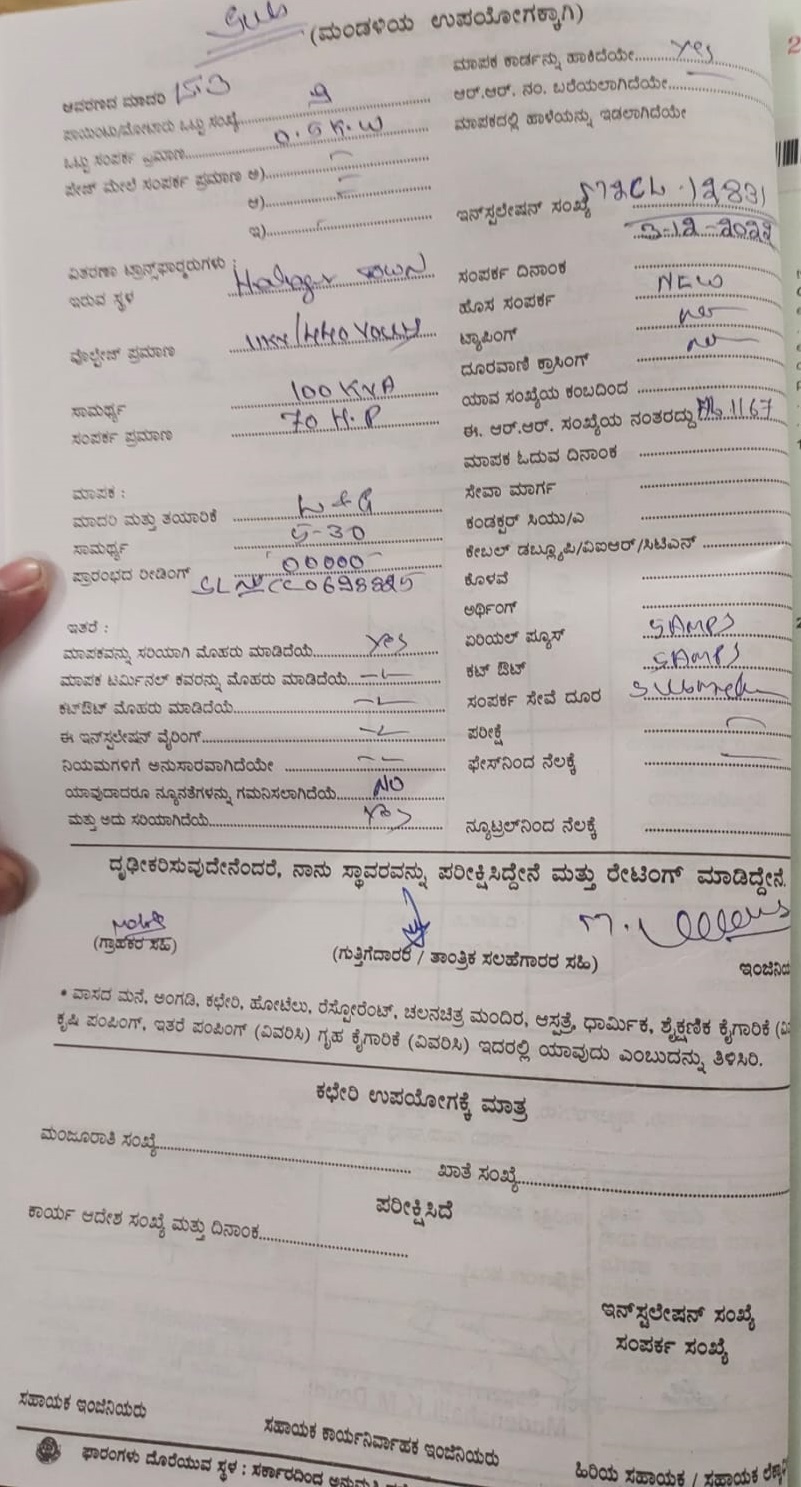 Sub
(ಮಂಡಳಿಯ ಉಪಯೋಗಕ್ಕಾಗಿ)
ಆವರಣದ ಮಾದರಿ
ಪಾಯಿಂಟು/ಮೋಟಾರು ಒಟ್ಟು ಸಂಖ್ಯೆ 9
ಒಟ್ಟು ಸಂಪರ್ಕ ಪ್ರಮಾಣ 0.5 K.W
ಪೇಜ್ ಮೇಲೆ ಸಂಪರ್ಕ ಪ್ರಮಾಣ ಅ)
ಆ)
ಇ)
ವಿತರಣಾ ಟ್ರಾನ್ಸ್‌ಫಾರ್ಮರುಗಳು :
ಇರುವ ಸ್ಥಳ Halagur Town
ವೋಲ್ಟೇಜ್ ಪ್ರಮಾಣ 11KV/440 Volts
ಸಾಮರ್ಥ್ಯ 100 KVA
ಸಂಪರ್ಕ ಪ್ರಮಾಣ 70 H.P
ಮಾಪಕ :
ಮಾದರಿ ಮತ್ತು ತಯಾರಿಕೆ L & G
ಸಾಮರ್ಥ್ಯ 5-30
ಪ್ರಾರಂಭದ ರೀಡಿಂಗ್ 00000
ಇತರೆ :
ಮಾಪಕವನ್ನು ಸರಿಯಾಗಿ ಮೊಹರು ಮಾಡಿದೆಯೆ Yes
ಮಾಪಕ ಟರ್ಮಿನಲ್ ಕವರನ್ನು ಮೊಹರು ಮಾಡಿದೆಯೆ
ಕಟ್‌ಔಟ್ ಮೊಹರು ಮಾಡಿದೆಯೆ
ಈ ಇನ್‌ಸ್ಟಲೇಷನ್ ವೈರಿಂಗ್
ನಿಯಮಗಳಿಗೆ ಅನುಸಾರವಾಗಿದೆಯೇ
ಯಾವುದಾದರೂ ನ್ಯೂನತೆಗಳನ್ನು ಗಮನಿಸಲಾಗಿದೆಯೆ NO
ಮತ್ತು ಅದು ಸರಿಯಾಗಿದೆಯೆ Yes
ಮಾಪಕ ಕಾರ್ಡನ್ನು ಹಾಕಿದೆಯೇ Yes
ಆರ್.ಆರ್. ನಂ. ಬರೆಯಲಾಗಿದೆಯೇ
ಮಾಪಕದಲ್ಲಿ ಹಾಳೆಯನ್ನು ಇಡಲಾಗಿದೆಯೇ
ಇನ್‌ಸ್ಟಲೇಷನ್ ಸಂಖ್ಯೆ
3-12-2022
ಸಂಪರ್ಕ ದಿನಾಂಕ
ಹೊಸ ಸಂಪರ್ಕ NEW
ಟ್ಯಾಪಿಂಗ್ no
ದೂರವಾಣಿ ಕ್ರಾಸಿಂಗ್ no
ಯಾವ ಸಂಖ್ಯೆಯ ಕಂಬದಿಂದ
ಈ. ಆರ್.ಆರ್. ಸಂಖ್ಯೆಯ ನಂತರದ್ದು 1167
ಮಾಪಕ ಓದುವ ದಿನಾಂಕ
ಸೇವಾ ಮಾರ್ಗ
ಕಂಡಕ್ಟರ್ ಸಿಯು/ಎ
ಕೇಬಲ್ ಡಬ್ಲ್ಯೂಪಿ/ವಿಐಆರ್/ಸಿಟಿಎಸ್
ಕೊಳವೆ
ಅರ್ಥಿಂಗ್
ಏರಿಯಲ್ ಪ್ಯೂಸ್ 5AMPS
ಕಟ್ ಔಟ್ 5AMPS
ಸಂಪರ್ಕ ಸೇವೆ ದೂರ
ಪರೀಕ್ಷೆ
ಫೇಸ್‌ನಿಂದ ನೆಲಕ್ಕೆ
ನ್ಯೂಟ್ರಲ್‌ನಿಂದ ನೆಲಕ್ಕೆ
ದೃಢೀಕರಿಸುವುದೇನೆಂದರೆ, ನಾನು ಸ್ಥಾವರವನ್ನು ಪರೀಕ್ಷಿಸಿದ್ದೇನೆ ಮತ್ತು ರೇಟಿಂಗ್ ಮಾಡಿದ್ದೇನೆ.
(ಗ್ರಾಹಕರ ಸಹಿ) (ಗುತ್ತಿಗೆದಾರರ / ತಾಂತ್ರಿಕ ಸಲಹೆಗಾರರ ಸಹಿ) ಇಂಜಿನಿಯ
* ವಾಸದ ಮನೆ, ಅಂಗಡಿ, ಕಛೇರಿ, ಹೋಟೆಲು, ರೆಸ್ಟೋರೆಂಟ್, ಚಲನಚಿತ್ರ ಮಂದಿರ, ಆಸ್ಪತ್ರೆ, ಧಾರ್ಮಿಕ, ಶೈಕ್ಷಣಿಕ ಕೈಗಾರಿಕೆ
ಕೃಷಿ ಪಂಪಿಂಗ್, ಇತರೆ ಪಂಪಿಂಗ್ (ವಿವರಿಸಿ) ಗೃಹ ಕೈಗಾರಿಕೆ (ವಿವರಿಸಿ) ಇದರಲ್ಲಿ ಯಾವುದು ಎಂಬುದನ್ನು ತಿಳಿಸಿರಿ.
ಕಛೇರಿ ಉಪಯೋಗಕ್ಕೆ ಮಾತ್ರ
ಮಂಜೂರಾತಿ ಸಂಖ್ಯೆ ಖಾತೆ ಸಂಖ್ಯೆ
ಪರೀಕ್ಷಿಸಿದೆ
ಕಾರ್ಯ ಆದೇಶ ಸಂಖ್ಯೆ ಮತ್ತು ದಿನಾಂಕ
ಇನ್‌ಸ್ಟಲೇಷನ್ ಸಂಖ್ಯೆ
ಸಂಪರ್ಕ ಸಂಖ್ಯೆ
ಸಹಾಯಕ ಇಂಜಿನಿಯರು ಸಹಾಯಕ ಕಾರ್ಯನಿರ್ವಾಹಕ ಇಂಜಿನಿಯರು ಹಿರಿಯ ಸಹಾಯಕ / ಸಹಾಯಕ
ಫಾರಂಗಳು ದೊರೆಯುವ ಸ್ಥಳ : ಸರ್ಕಾರದಿಂದ